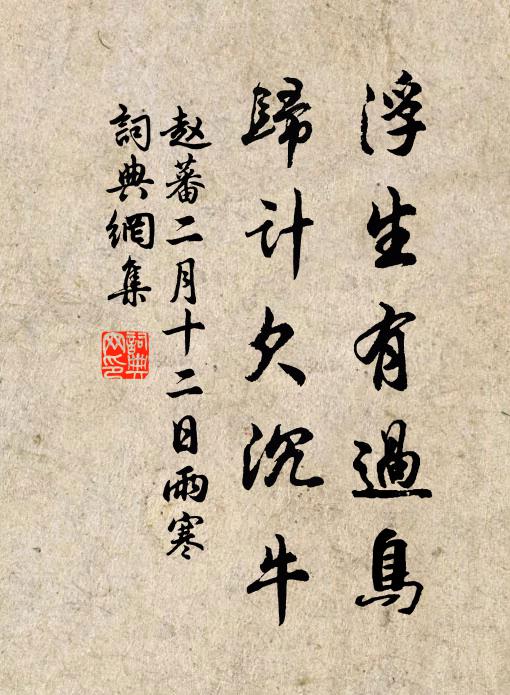 浮生有過鳥
歸計欠沉牛
赵蕃二月十二日雨寒
詞典網集
詞典網印